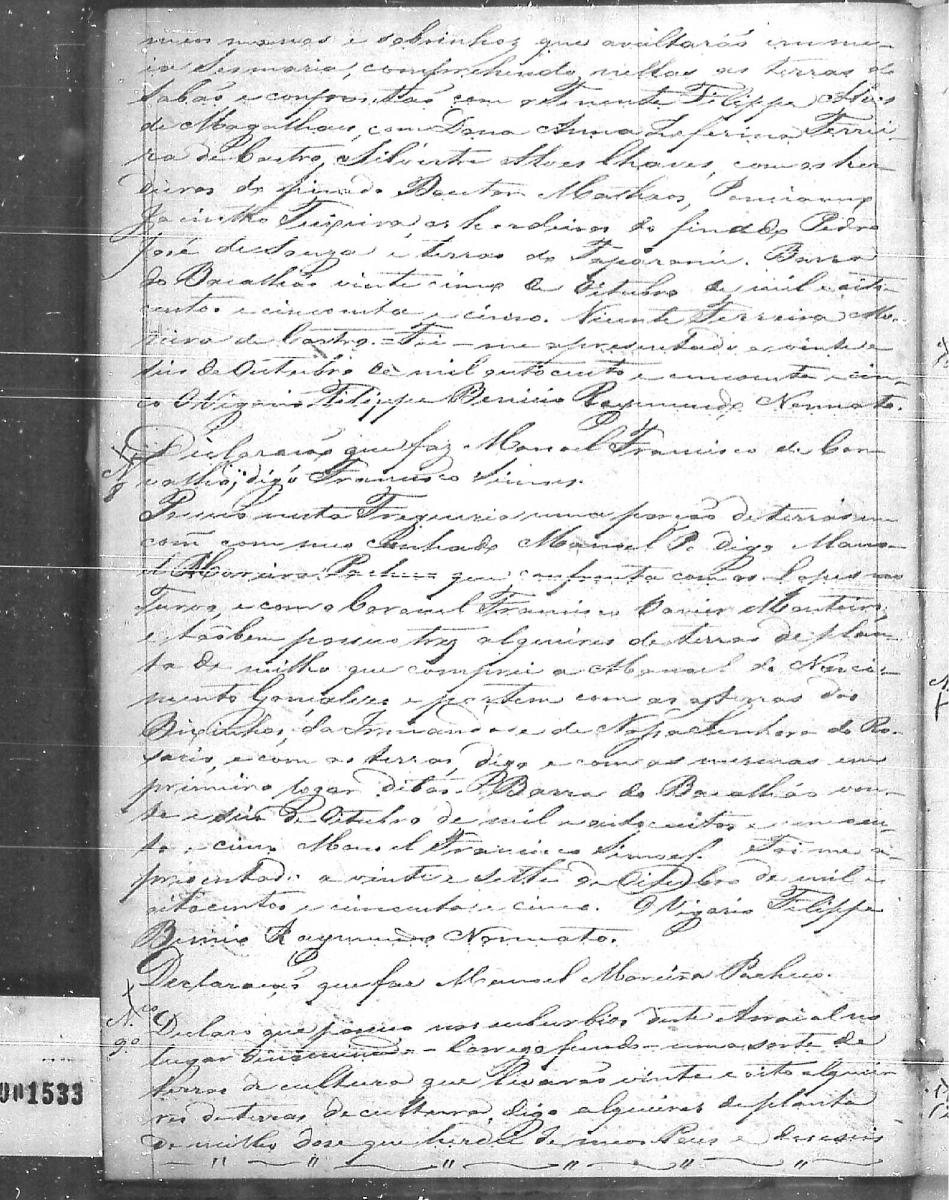 meus manos e sobrinhos que avultarás em me-
ia Sesmaria, comprehendo nellas as terras do
Sabão e confrontão com o Tenente Filippe Alves
de Magalhães, com Dona Anna Zeferina Ferrei-
ra de Castro, Silverio Alves Chaves, com os her-
deiros do finado Matheos, Ponciano
Jacintho Teixeira os herdeiros do finado Pedro
José de Souza e terras do . Barra
do Bacalháo vinte cinco de Oitubro de mil e oito
centos e cincoenta e cinco. Vicente Ferreira Mo-
reira de Castro. = Foi-me apresentado a vinte e
seis de Outubro de mil outocento e cincoenta e cin-
co O Vigario Filippe Benicio Raymundo Nonnato.
Declaração que faz Manoel Francisco de Car
valho, digo Francisco Simões.
Possuo nesta Freguezia uma porção de terras em
com̃ com meo Cunhado Manoel P. digo Mano-
el Moreira Pacheco que confronta com os Lopes no
Turvo, e com o Coronel Francisco Xavier Monteiro,
e tãobem possuo trez alqueires de terras de plan-
ta de milho que comprei a Manoel do Nasci-
mento Gonçalves e partem com as terras dos
, da Irmandade de Nossa Senhora do Ro-
sario, e com as terras, digo e com as mesmas em
primeiro logar ditas. Barra do Bacalháo vin-
te e seis de Otubro de mil e outocentos e cincoen-
ta e cinco Manoel Francisco Simoes. Foi me a-
presentado a vinte e sette de Oitubro de mil e
oitocentos e cincoenta e cinco. O Vigario Filippe
Benicio Raymundo Nonnato.
Declaração que faz Manoel Moreira Pacheco.
N.
90
Declaro que possuo nos suburbios deste Arraial no
lugar denominado - Corrego fundo - uma sorte de
terras de cultura que levarão vinte e oito alquei
res de terras de cultura, digo alqueires de planta
de milho dose que herdei de meos Pais e deseseis
001533